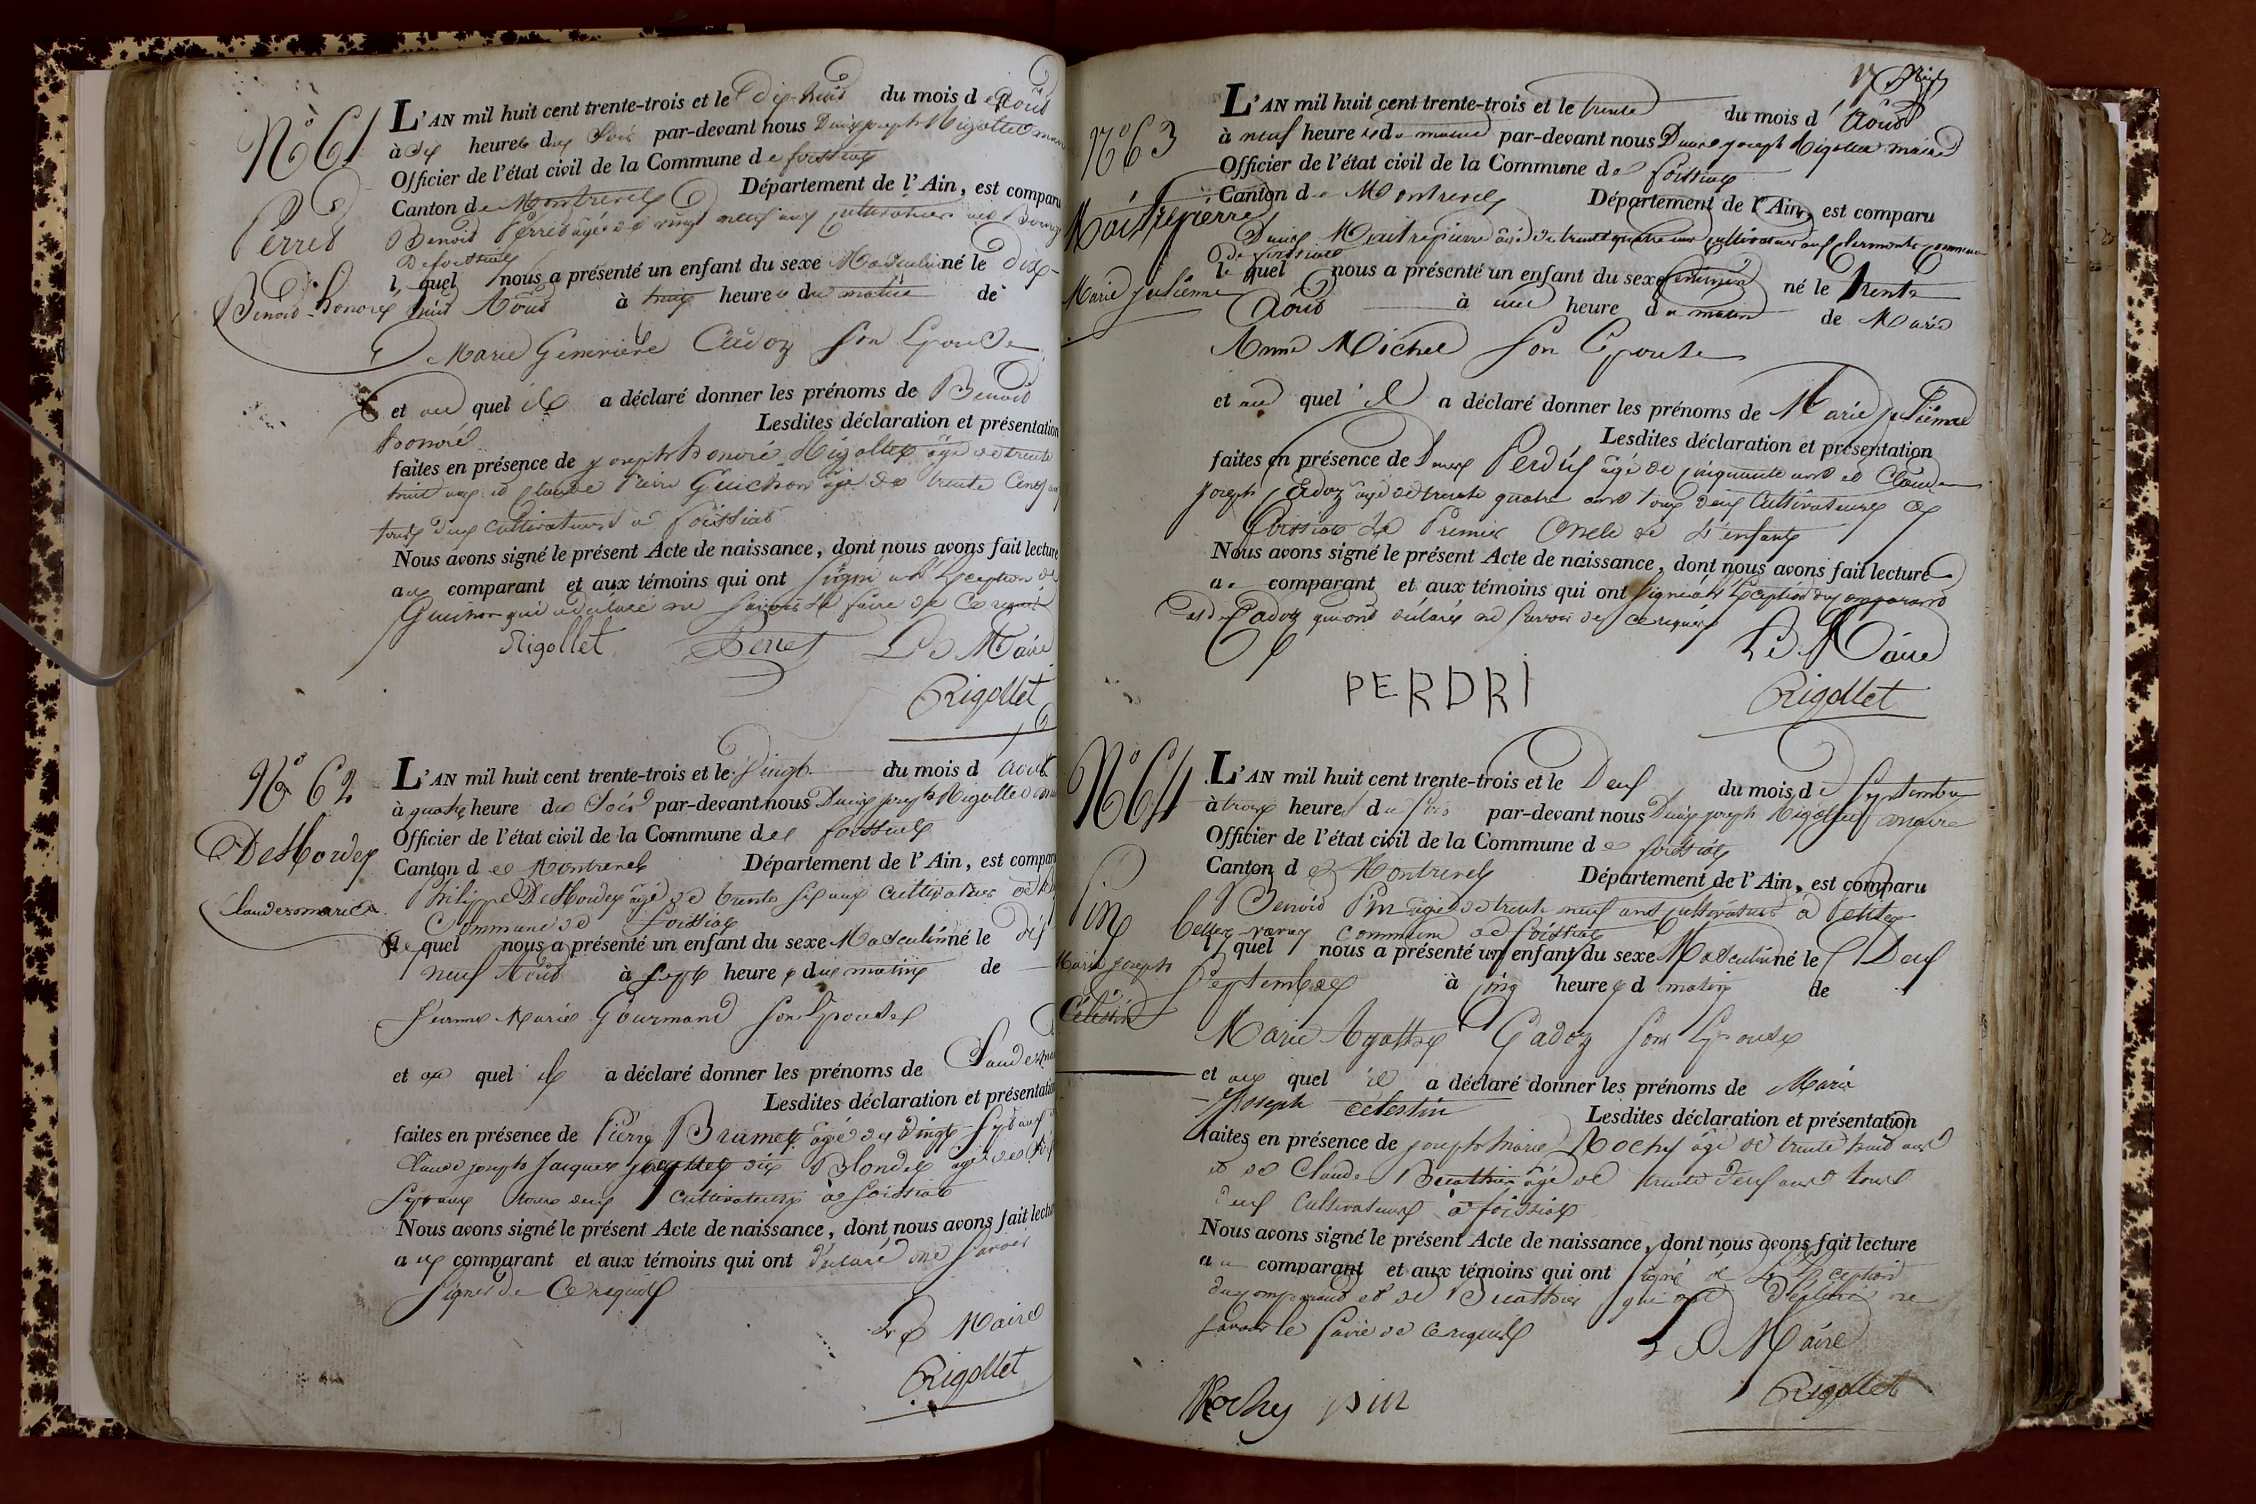 N° 61
Perret
Benoit honoré
L'AN mil huit cent trente-trois et le dix-huit du mois d'Août
à heures du Soir par-devant nous Denis joseph Rigollet maire
Officier de l'état civil de la Commune de foissiat
Canton de Montrevel Département de l'Ain, est comparu
Benoit Perret âgé de vingt neuf ans cultivateur
De foissiat
lequel nous a présenté un enfant du sexe Masculin né le Dix-
huit Août à heures du matin de
Marie Genevieve Cadoz Son Epouse
et au quel il a déclaré donner les prénoms de Benoit
honoré Lesdites déclaration et présentation
faites en présence de joseph honoré Rigollet âgé de trente
huit ans et Claude Pierre Guichon âgé de trente Cinq ans
tous deux cultivateurs à foissiat
Nous avons signé le présent Acte de naissance, dont nous avons fait lecture
au comparant et aux témoins qui ont signé à l'Exception de
Guichon qui a déclaré ne Savoir le faire de Ce requis
Rigollet Perret Le Maire
Rigollet
N° 62
DesHordes
Claude marie
L'AN mil huit cent trente-trois et le Vingt du mois d'Août
à quatre heure du Soir par-devant nous Denis joseph Rigollet
Officier de l'état civil de la Commune de foissiat
Canton de Montrevel Département de l'Ain, est comparu
Philippe DesHordes âgé de trente six ans cultivateur
Commune de foissiat
le quel nous a présenté un enfant du sexe Masculin né le dix
neuf Août à Sept heures du matin de
Marie Gourmand Son Epouse
et au quel il a déclaré donner les prénoms de Claude
Lesdites déclaration et présentation
faites en présence de Pierre Brumet âgé de Vingt Sept ans
Claude joseph Jacques dix Blondel âgé de
Sept ans tous deux cultivateurs à foissiat
Nous avons signé le présent Acte de naissance, dont nous avons fait lecture
au comparant et aux témoins qui ont déclaré ne Savoir
Signer de Ce requis
Le Maire
Rigollet
17
N° 63
Maitrepierre
Marie juliènne
L'AN mil huit cent trente-trois et le trente du mois d'Août
à neuf heures du matin par-devant nous Denis joseph Rigollet maire
Officier de l'état civil de la Commune de foissiat
Canton de Montrevel Département de l'Ain, est comparu
Denis Maitrepierre âgé de trente quatre ans cultivateur aux clermonts commune
De foissiat
le quel nous a présenté un enfant du sexe feminin né le trente
Août à une heure du matin de Marie
Anne Michel Son Epouse
et au quel il a déclaré donner les prénoms de Marie juliènne
Lesdites déclaration et présentation
faites en présence de Denis Perdrix âgé de cinquante ans et Claude
joseph Cadoz âgé de trente quatre ans tous deux Cultivateurs à
foissiat le Premier Oncle de L'enfant
Nous avons signé le présent Acte de naissance, dont nous avons fait lecture
au comparant et aux témoins qui ont signé à l'Exception du comparant
et de Cadoz qui ont déclaré ne Savoir de ce requis
Le Maire
PERDRI Rigollet
N° 64
Pin
Marie joseph
Célestin
L'AN mil huit cent trente-trois et le Deux du mois de Septembre
à trois heures du Soir par-devant nous Denis joseph Rigollet maire
Officier de l'état civil de la Commune de foissiat
Canton de Montrevel Département de l'Ain, est comparu
Benoit Pin âgé de trente neuf ans cultivateur à Petite
commune de foissiat
lequel nous a présenté un enfant du sexe Masculin né le Deux
Septembre à cinq heures d matin de
Marie Agathe Cadoz Son Epouse
et au quel il a déclaré donner les prénoms de Marie
Joseph Célestin Lesdites déclaration et présentation
faites en présence de joseph marie Rochy âgé de trente huit ans
et de Claude Beatthier âgé de trente deux ans tous
deux cultivateurs à foissiat
Nous avons signé le présent Acte de naissance, dont nous avons fait lecture
au comparant et aux témoins qui ont signé à L'Exception
du comparant et de qui ont déclaré ne
savoir le faire de ce requis
Le Maire
Rochy pin Rigollet